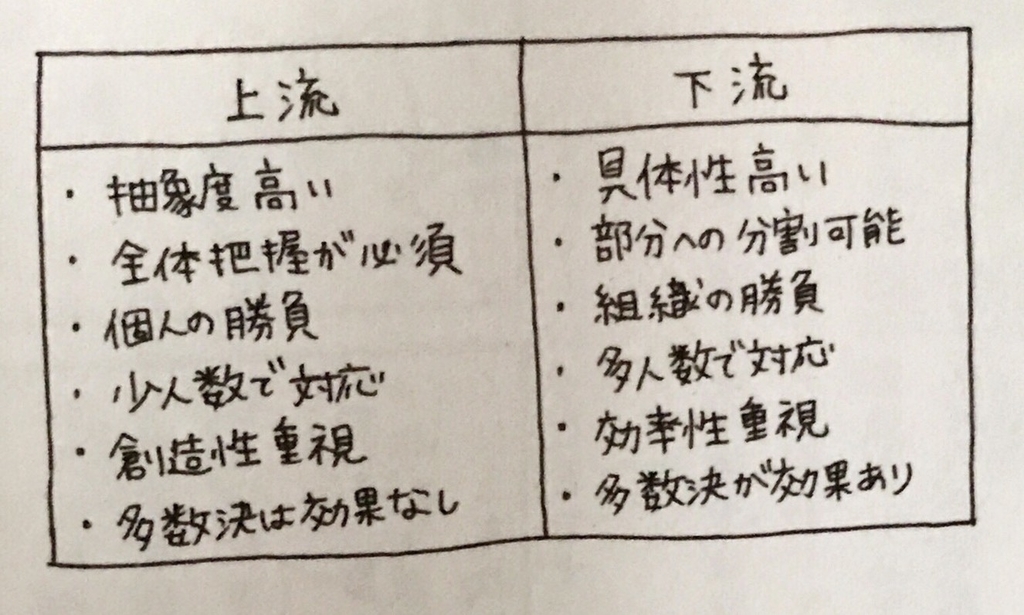 上流
下流
・抽象度高い
・全体把握が必須
・個人の勝負
・少人数で対応
・創造性重視
・多数決は効果なし
・具体性高い
・部分への分割可能
・組織の勝負
・多人数で対応
・効率性重視
・多数決が効果あり